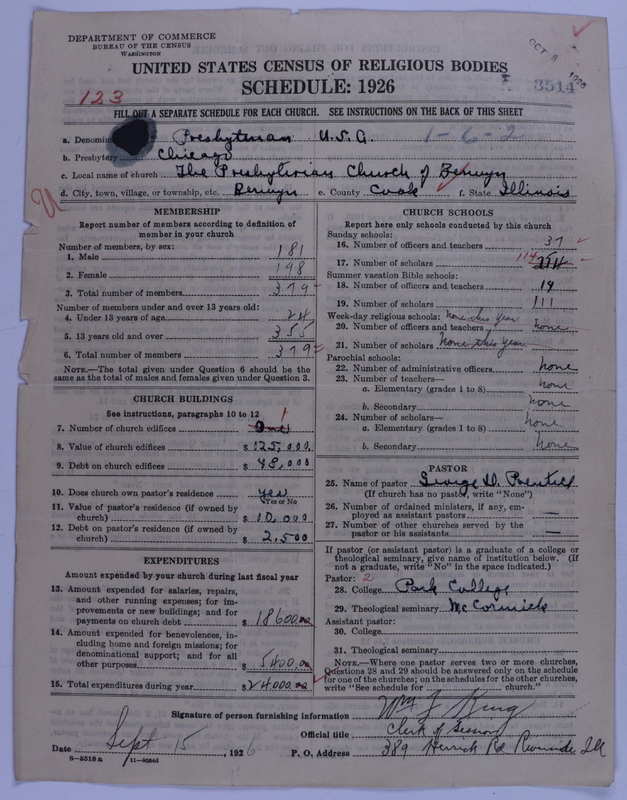 DEPARTMENT OF COMMERCE
BUREAU OF THE CENSUS
WASHINGTON
OCT 8 1926
UNITED STATES CENSUS OF RELIGIOUS BODIES
SCHEDULE: 1926
3514
123
FILL OUT A SEPARATE SCHEDULE FOR EACH CHURCH. SEE INSTRUCTIONS ON THE BACK OF THIS SHEET
a. Denomin Presbyterian U.S.A. 1-6-2
b. Presbytery Chicago
c. Local name of church The Presbyterian Church of Berwyn
d. City, town, village, or township, etc. Berwyn e. County Cook f. State Illinois
MEMBERSHIP
Report number of members according to definition of
member in your church
Number of members, by sex:
1. Male 181
2. Female 198
3. Total number of members 379
Number of members under and over 13 years old:
4. Under 13 years of age 24
5. 13 years old and over 355
6. Total number of members 379
NOTE.—The total given under Question 6 should be the
same as the total of males and females given under Question 3.
CHURCH BUILDINGS
See instructions, paragraphs 10 to 12
7. Number of church edifices One 1
8. Value of church edifices $ 125,000
9. Debt on church edifices $ 48,000
10. Does church own pastor's residence yes
Yes or No
11. Value of pastor's residence (if owned by
church) $ 10,000
12. Debt on pastor's residence (if owned by
church) $ 2,500
EXPENDITURES
Amount expended by your church during last fiscal year
13. Amount expended for salaries, repairs,
and other running expenses; for im-
provements or new buildings; and for
payments on church debt $ 18600.00
14. Amount expended for benevolences, in-
cluding home and foreign missions; for
denominational support; and for all
other purposes $ 5400.00
15. Total expenditures during year $ 24000.00
CHURCH SCHOOLS
Report here only schools conducted by this church
Sunday schools:
16. Number of officers and teachers 37
17. Number of scholars 114
Summer vacation Bible schools:
18. Number of officers and teachers 19
19. Number of scholars 111
Week-day religious schools: none this year
20. Number of officers and teachers none
21. Number of scholars none this year
Parochial schools:
22. Number of administrative officers none
23. Number of teachers—
a. Elementary (grades 1 to 8) none
b. Secondary none
24. Number of scholars—
a. Elementary (grades 1 to 8) none
b. Secondary none
PASTOR
25. Name of pastor George D. Prentice
(If church has no pastor, write "None")
26. Number of ordained ministers, if any, em-
ployed as assistant pastors —
27. Number of other churches served by the
pastor or his assistants —
If pastor (or assistant pastor) is a graduate of a college or
theological seminary, give name of institution below. (If
not a graduate, write "No" in the space indicated.)
Pastor: 2
28. College Park College
29. Theological seminary McCormick
Assistant pastor:
30. College
31. Theological seminary
NOTE.—Where one pastor serves two or more churches,
Questions 28 and 29 should be answered only on the schedule
for one of the churches; on the schedules for the other churches,
write "See schedule for church."
Signature of person furnishing information Wm J King
Official title Clerk of Session
Date Sept 15, 1926 P. O. Address 389 Herrick Rd Riverside Ill
8-5518 a